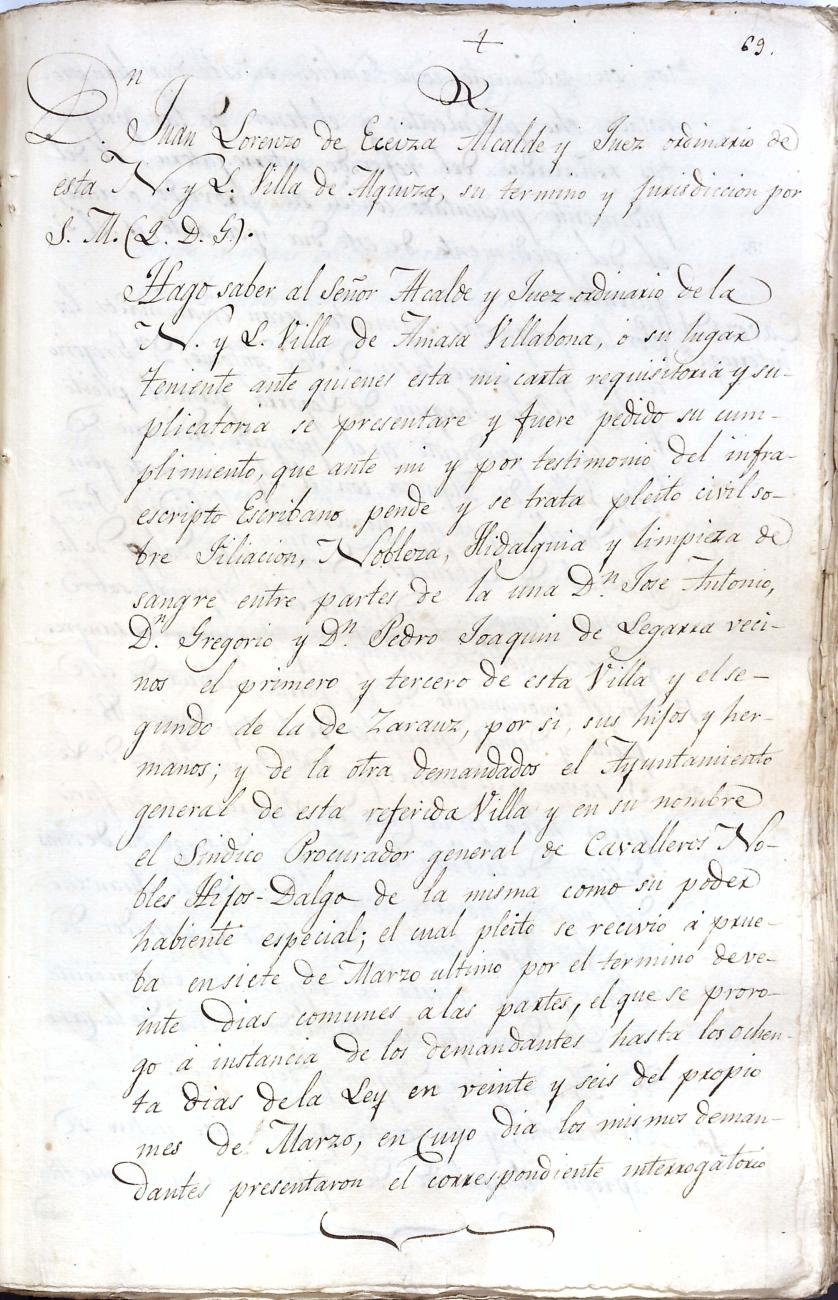 69.
R.
D.n Juan Lorenzo de Eceiza Alcalde y Juez ordinario de
esta N. y L. Villa de Alquiza, su termino y Jurisdiccion por
S. M. (Q. D. G.).
Hago saber al Señor Alcalde y Juez ordinario de la
N. y L. Villa de Amasa Villabona, ó su lugar
teniente ante quienes esta mi carta requisitoria y su-
plicatoria se presentare y fuere pedido su cum-
plimiento, que ante mi y por testimonio del infra-
escripto Escribano pende y se trata pleito civil so-
bre Filiacion, Nobleza, Hidalguia y limpieza de
sangre entre partes de la una D.n Jose Antonio,
D.n Gregorio y D.n Pedro Joaquin de Legarra veci-
nos el primero y tercero de esta Villa y el se-
gundo de la de Zarauz, por si, sus hijos y her-
manos; y de la otra demandados el Ayuntamiento
general de esta referida Villa y en su nombre
el Sindico Procurador general de Cavalleros No-
bles Hijos-Dalgo de la misma como su poder
habiente especial; el cual pleito se recivio á prue-
ba en siete de Marzo ultimo por el termino de ve-
inte dias comunes á las partes, el que se proro-
gó á instancia de los demandantes hasta los ochen-
ta dias de la Ley en veinte y seis del propio
mes de Marzo, en cuyo dia los mismos deman-
dantes presentaron el correspondiente interrogatorio